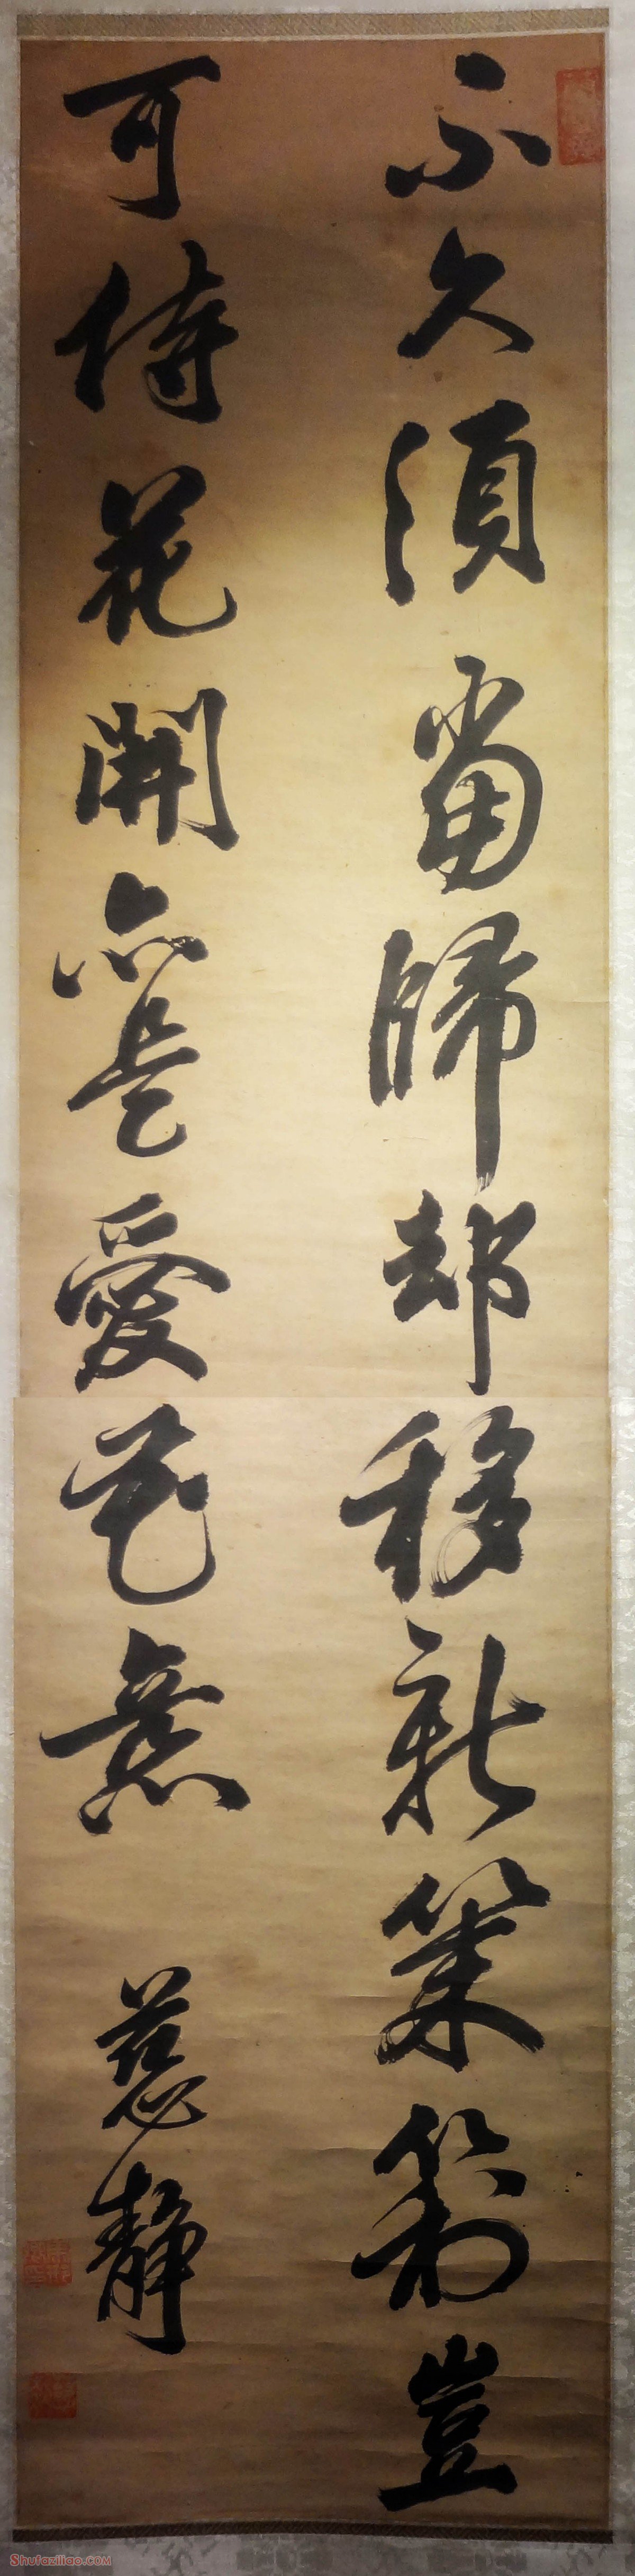 不久須當歸却移新豈
可待花開亦是愛花意
慈靜
Shufaziliao.com